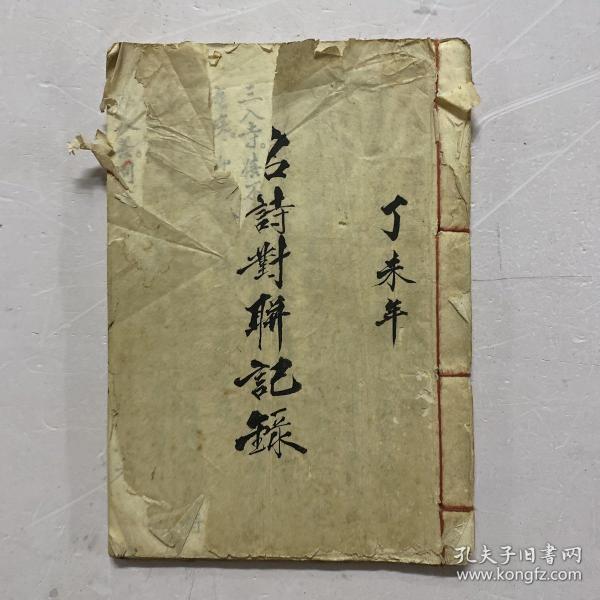 丁未年
名詩對聯記錄
三八寺。
孔夫子旧书网
www.kongfz.com